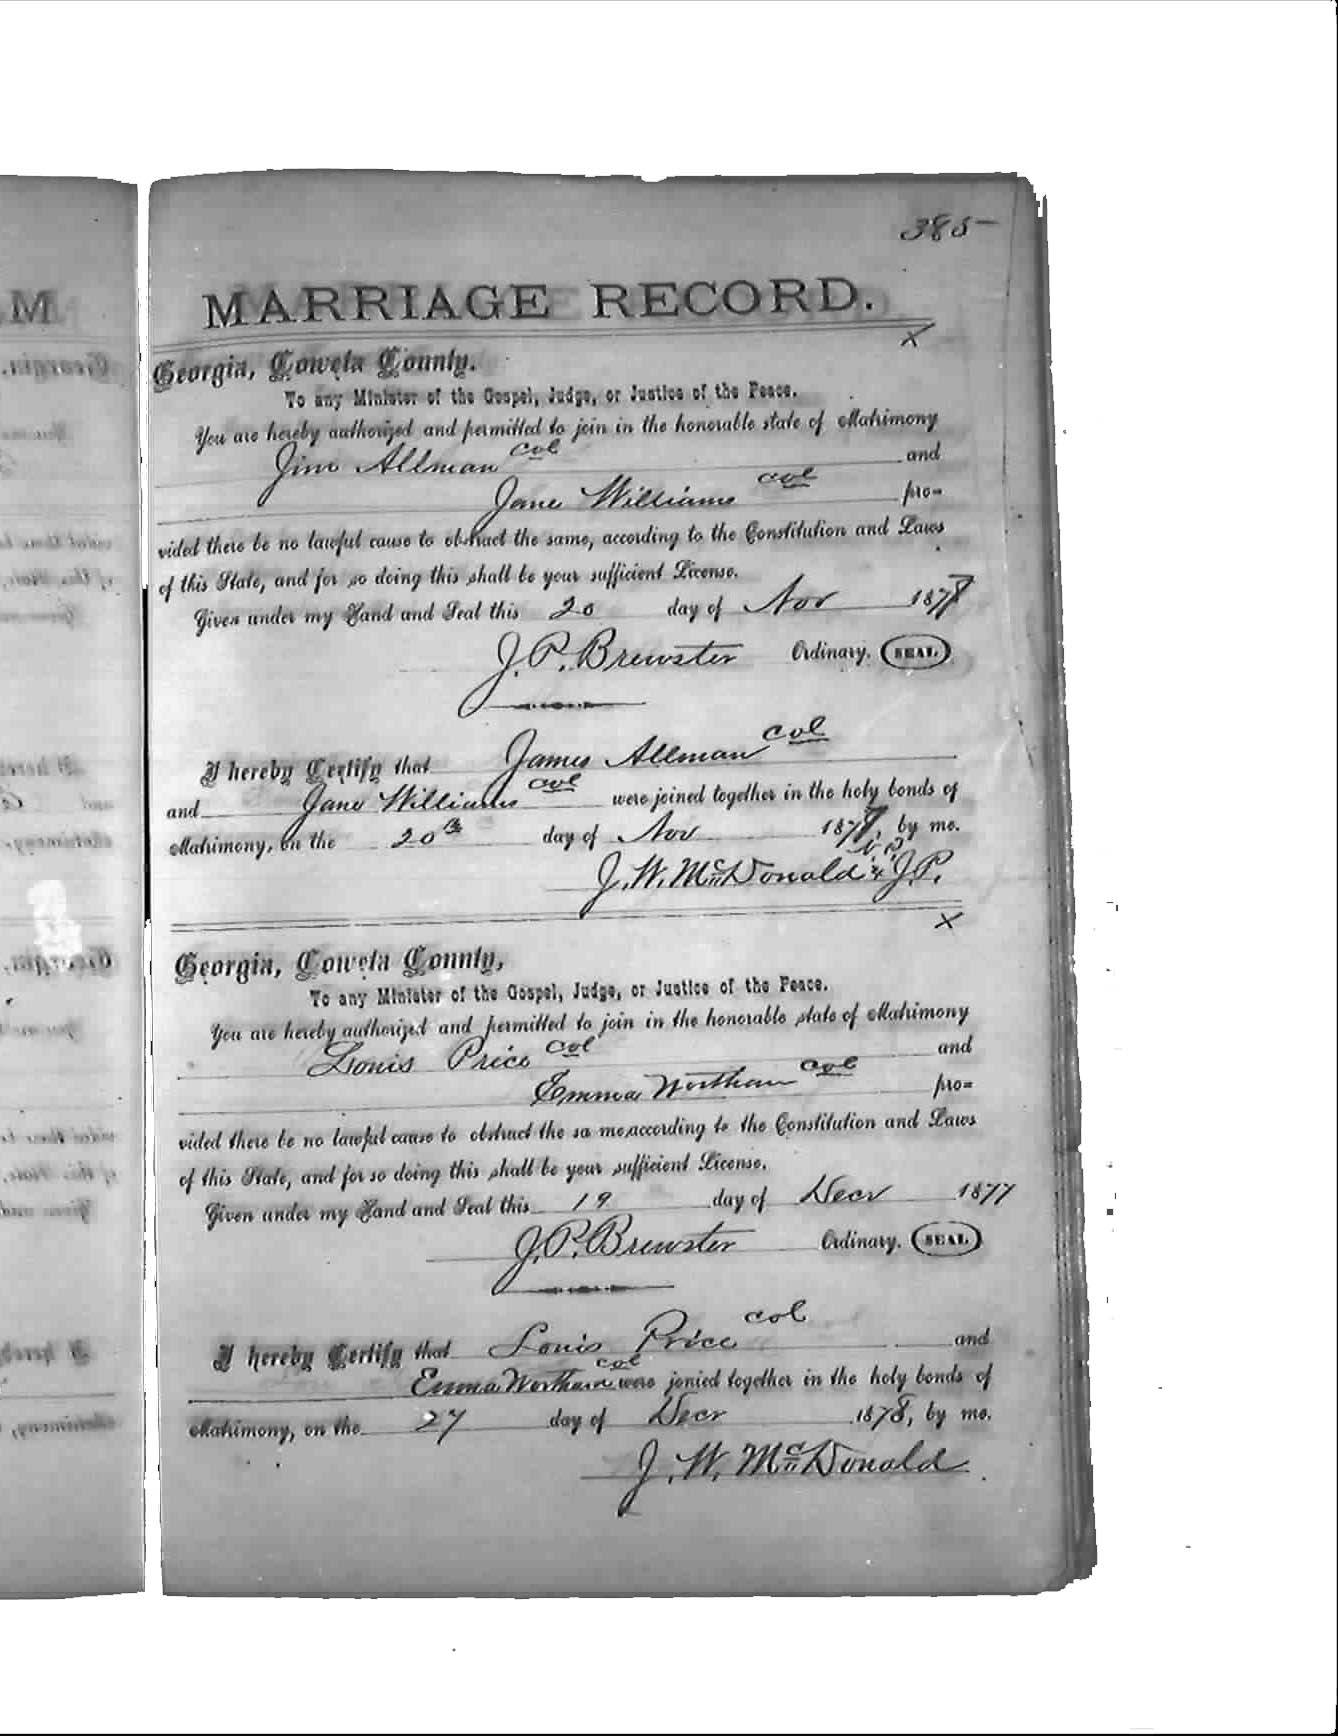 385
MARRIAGE RECORD.
X
Georgia, Coweta County.
To any Minister of the Gospel, Judge, or Justice of the Peace.
You are hereby authorized and permitted to join in the honorable state of Matrimony
Jim Allman col and
Jane Williams col pro=
vided there be no lawful cause to obstract the same, according to the Constitution and Laws
of this State, and for so doing this shall be your sufficient License.
Given under my Hand and Seal this 20 day of Nov 1878
J. P. Brewster Ordinary. SEAL
I hereby Certify that James Allman col
and Jane Williams col were joined together in the holy bonds of
Matrimony, on the 20th day of Nov 1878, by me.
J. W. McDonald J.P.
X
Georgia, Coweta County,
To any Minister of the Gospel, Judge, or Justice of the Peace.
You are hereby authorized and permitted to join in the honorable state of Matrimony
Louis Price col and
Emma Wortham col pro=
vided there be no lawful cause to obstract the sa me, according to the Constitution and Laws
of this State, and for so doing this shall be your sufficient License.
Given under my Hand and Seal this 19 day of Decr 1877
J. P. Brewster Ordinary. SEAL
I hereby Certify that Louis Price col and
Emma Wortham col were jonied together in the holy bonds of
Matrimony, on the 27 day of Decr 1878, by me.
J. W. McDonald